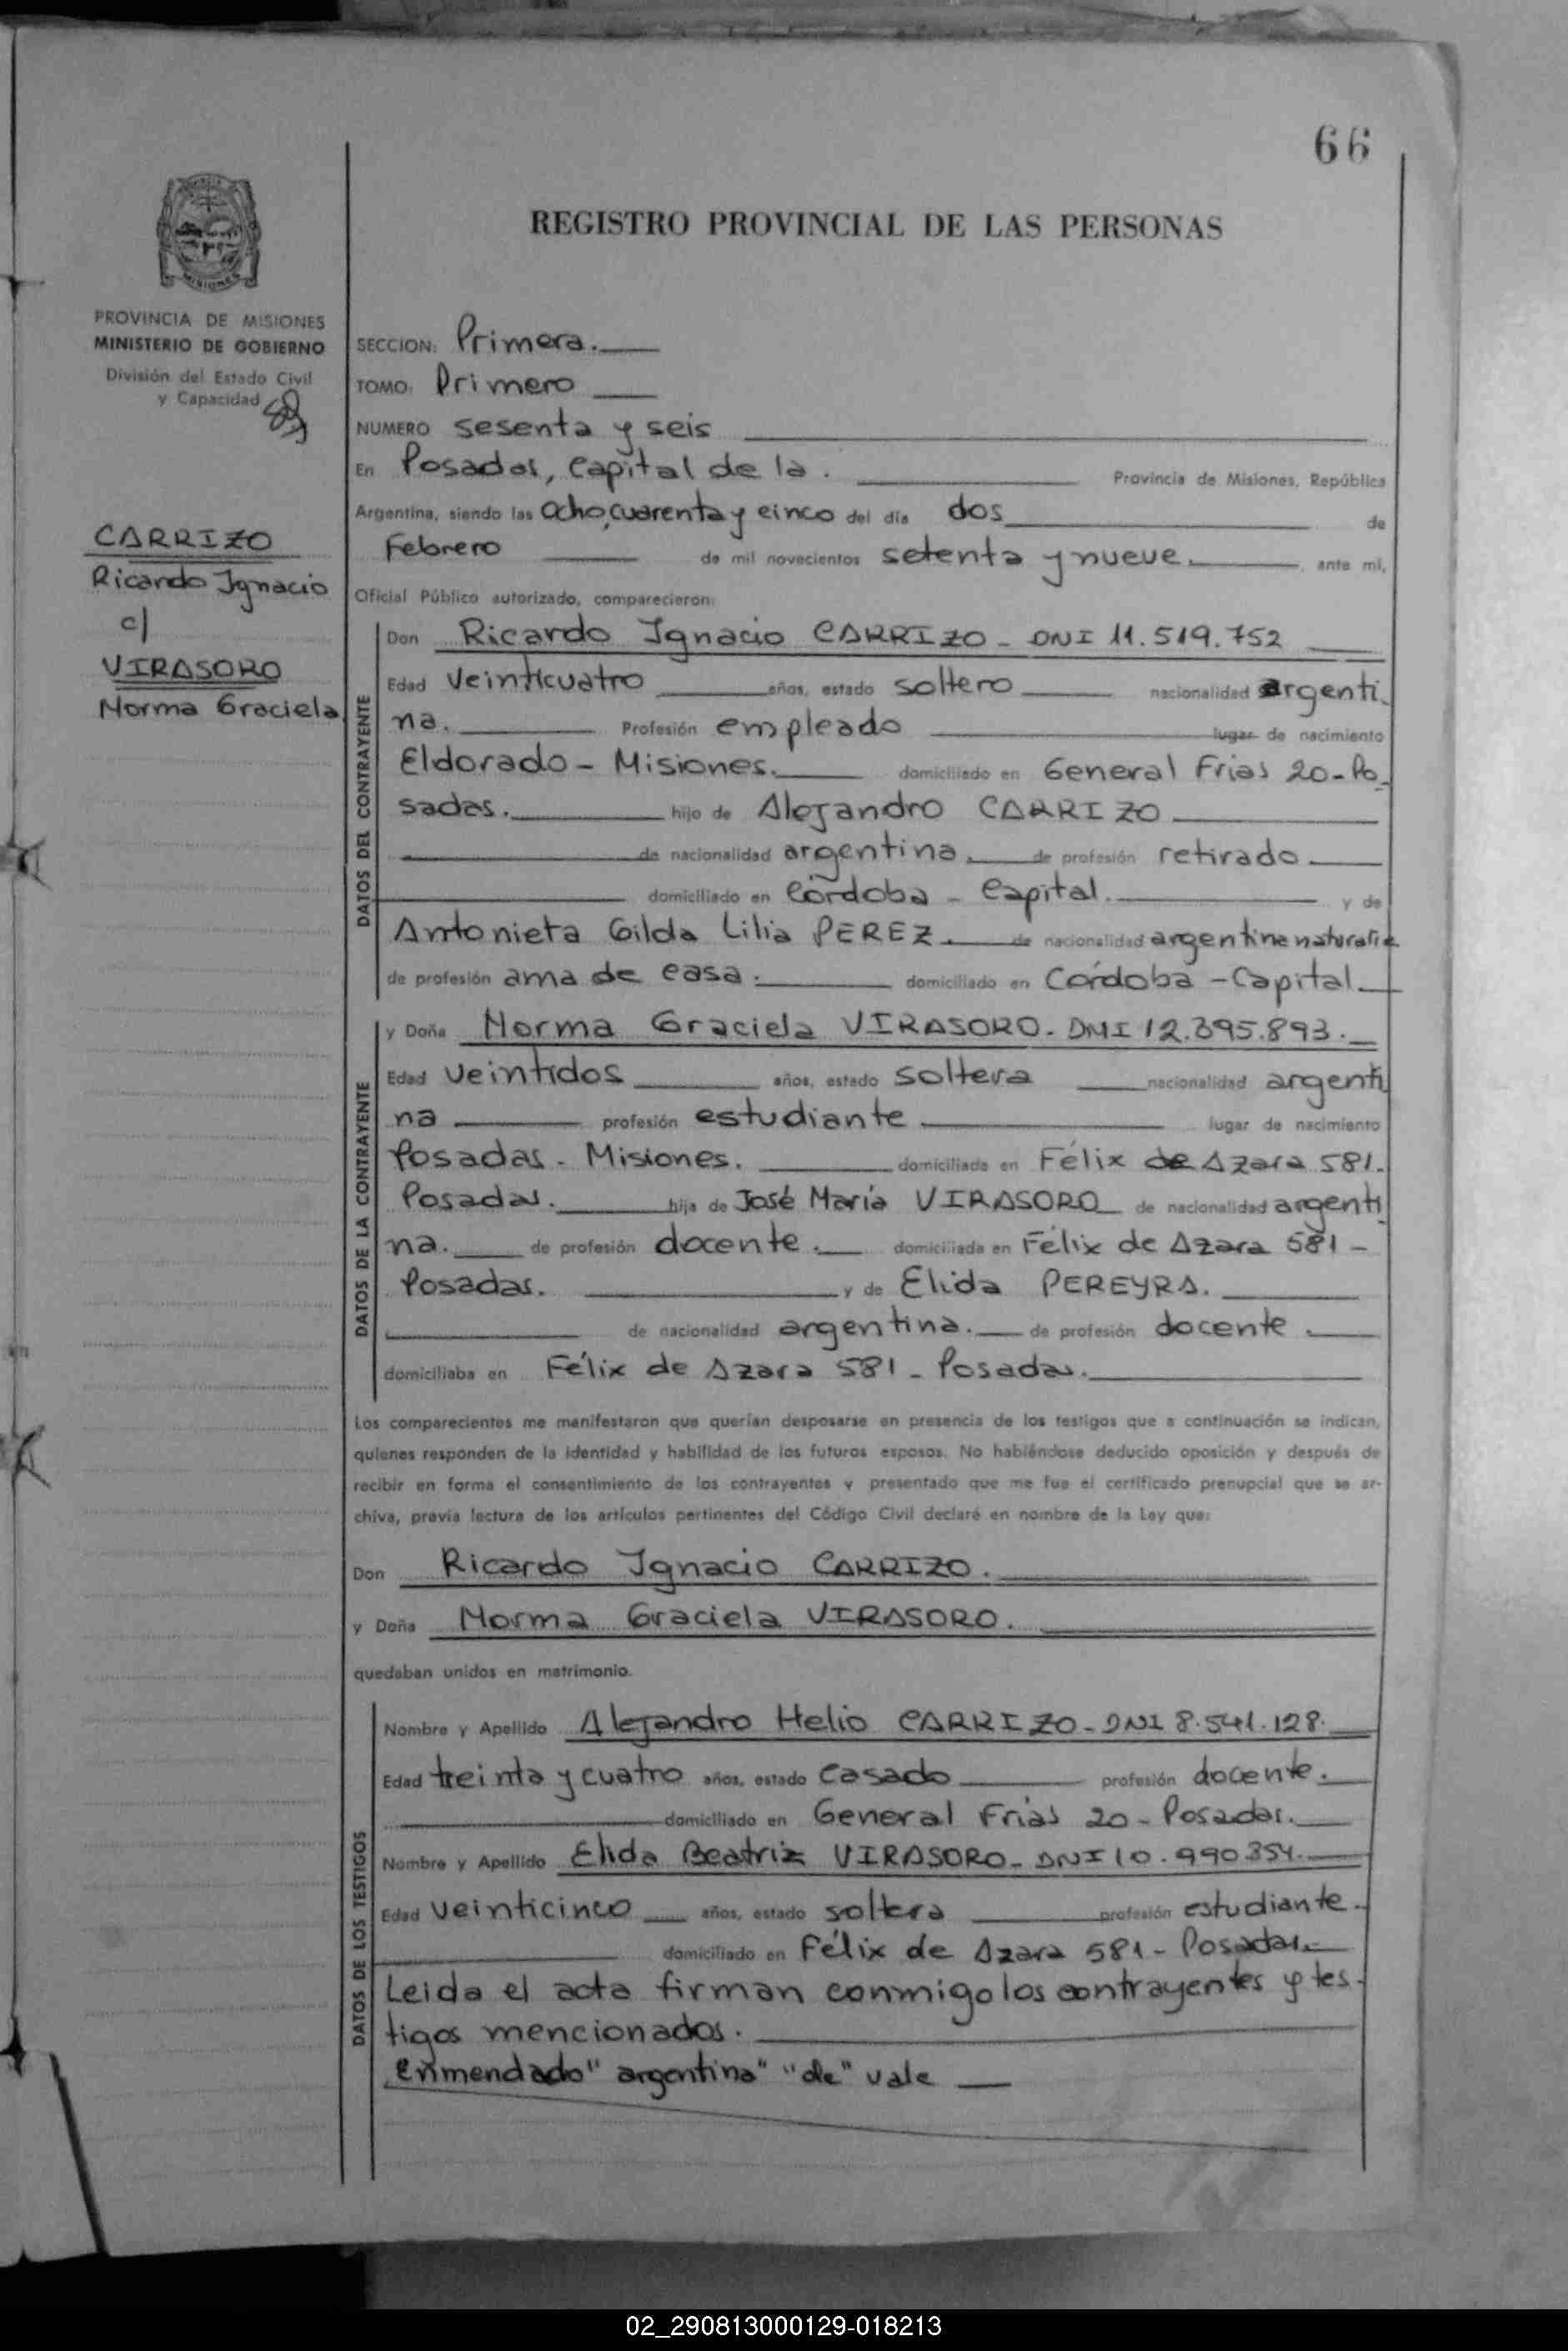 66
REGISTRO PROVINCIAL DE LAS PERSONAS
MISIONES
PROVINCIA DE MISIONES
MINISTERIO DE GOBIERNO
División del Estado Civil
y Capacidad
CARRIZO
Ricardo Ignacio
c/
VIRASORO
Norma Graciela
SECCION: Primera.
TOMO: Primero
NUMERO sesenta y seis
En Posadas, Capital de la. Provincia de Misiones, República
Argentina, siendo las ocho, cuarenta y cinco del día dos de
Febrero de mil novecientos setenta y nueve. ante mí,
Oficial Público autorizado, comparecieron:
DATOS DEL CONTRAYENTE
Don Ricardo Ignacio CARRIZO - DNI 11.519.752
Edad veinticuatro años, estado soltero nacionalidad argenti-
na. Profesión empleado lugar de nacimiento
Eldorado - Misiones. domiciliado en General Frias 20 - Po-
sadas. hijo de Alejandro CARRIZO
de nacionalidad argentina. de profesión retirado
domiciliado en Córdoba - Capital. y de
Antonieta Gilda Lilia PEREZ. de nacionalidad argentina naturaliz
de profesión ama de casa. domiciliado en Córdoba - Capital.
DATOS DE LA CONTRAYENTE
y Doña Norma Graciela VIRASORO - DNI 12.395.893.
Edad veintidos años, estado soltera nacionalidad argenti
na profesión estudiante lugar de nacimiento
Posadas - Misiones. domiciliada en Félix de Azara 581.
Posadas. hija de José María VIRASORO de nacionalidad argenti
na. de profesión docente. domiciliada en Félix de Azara 581 -
Posadas. y de Elida PEREYRA.
de nacionalidad argentina. de profesión docente.
domiciliaba en Félix de Azara 581 - Posadas.
Los comparecientes me manifestaron que querían desposarse en presencia de los testigos que a continuación se indican,
quienes responden de la identidad y habilidad de los futuros esposos. No habiéndose deducido oposición y después de
recibir en forma el consentimiento de los contrayentes y presentado que me fue el certificado prenupcial que se ar-
chiva, previa lectura de los artículos pertinentes del Código Civil declaré en nombre de la Ley que:
Don Ricardo Ignacio CARRIZO.
y Doña Norma Graciela VIRASORO.
quedaban unidos en matrimonio.
DATOS DE LOS TESTIGOS
Nombre y Apellido Alejandro Helio CARRIZO - DNI 8.541.128.
Edad treinta y cuatro años, estado casado profesión docente.
domiciliado en General Frias 20 - Posadas.
Nombre y Apellido Elida Beatriz VIRASORO - DNI 10.990.354.
Edad veinticinco años, estado soltera profesión estudiante.
domiciliado en Félix de Azara 581 - Posadas.
Leida el acta firman conmigo los contrayentes y tes-
tigos mencionados.
Enmendado "argentina" "de" vale
02_290813000129-018213